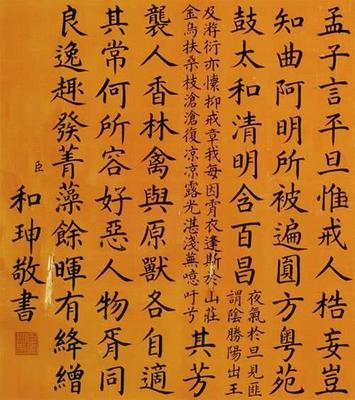 孟子言平旦惟戒人梏妄
知曲阿明所被遍圓方粵苑
鼓太和清明含百昌
夜氣於旦見匪
謂陰勝陽出王
及游衍亦懔抑戒章我每因宵衣逢斯於山莊
金烏扶桑枝滄滄復凉凉露光湛淺蕪噫吁兮
其芳
襲人香林禽與原獸各自適
其常何所容好惡人物胥同
良逸趣發菁藻餘暉有絳繒
臣和珅敬書